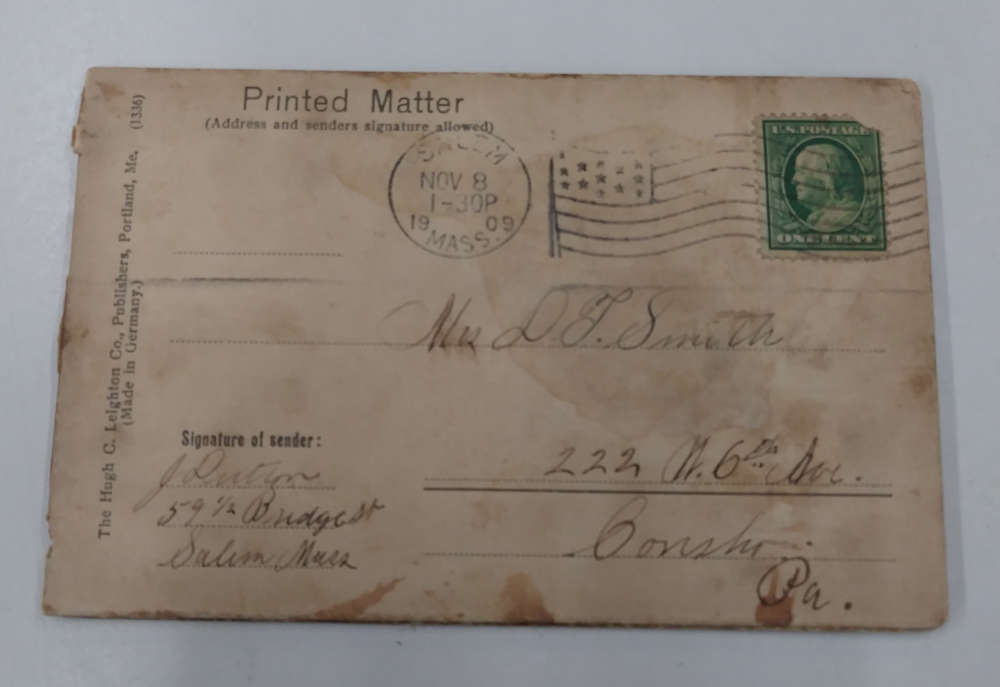 Printed Matter
(Address and senders signature allowed)
The Hugh C. Leighton Co., Publishers, Portland, Me. (1336)
(Made in Germany.)
SALEM
NOV 8
1-30P
1909
MASS.
U.S. POSTAGE
ONE CENT
Mrs D. F. Smith
222 W. 6th Ave.
Consho.
Pa.
Signature of sender:
J
59 1/2 Bridge St
Salem Mass